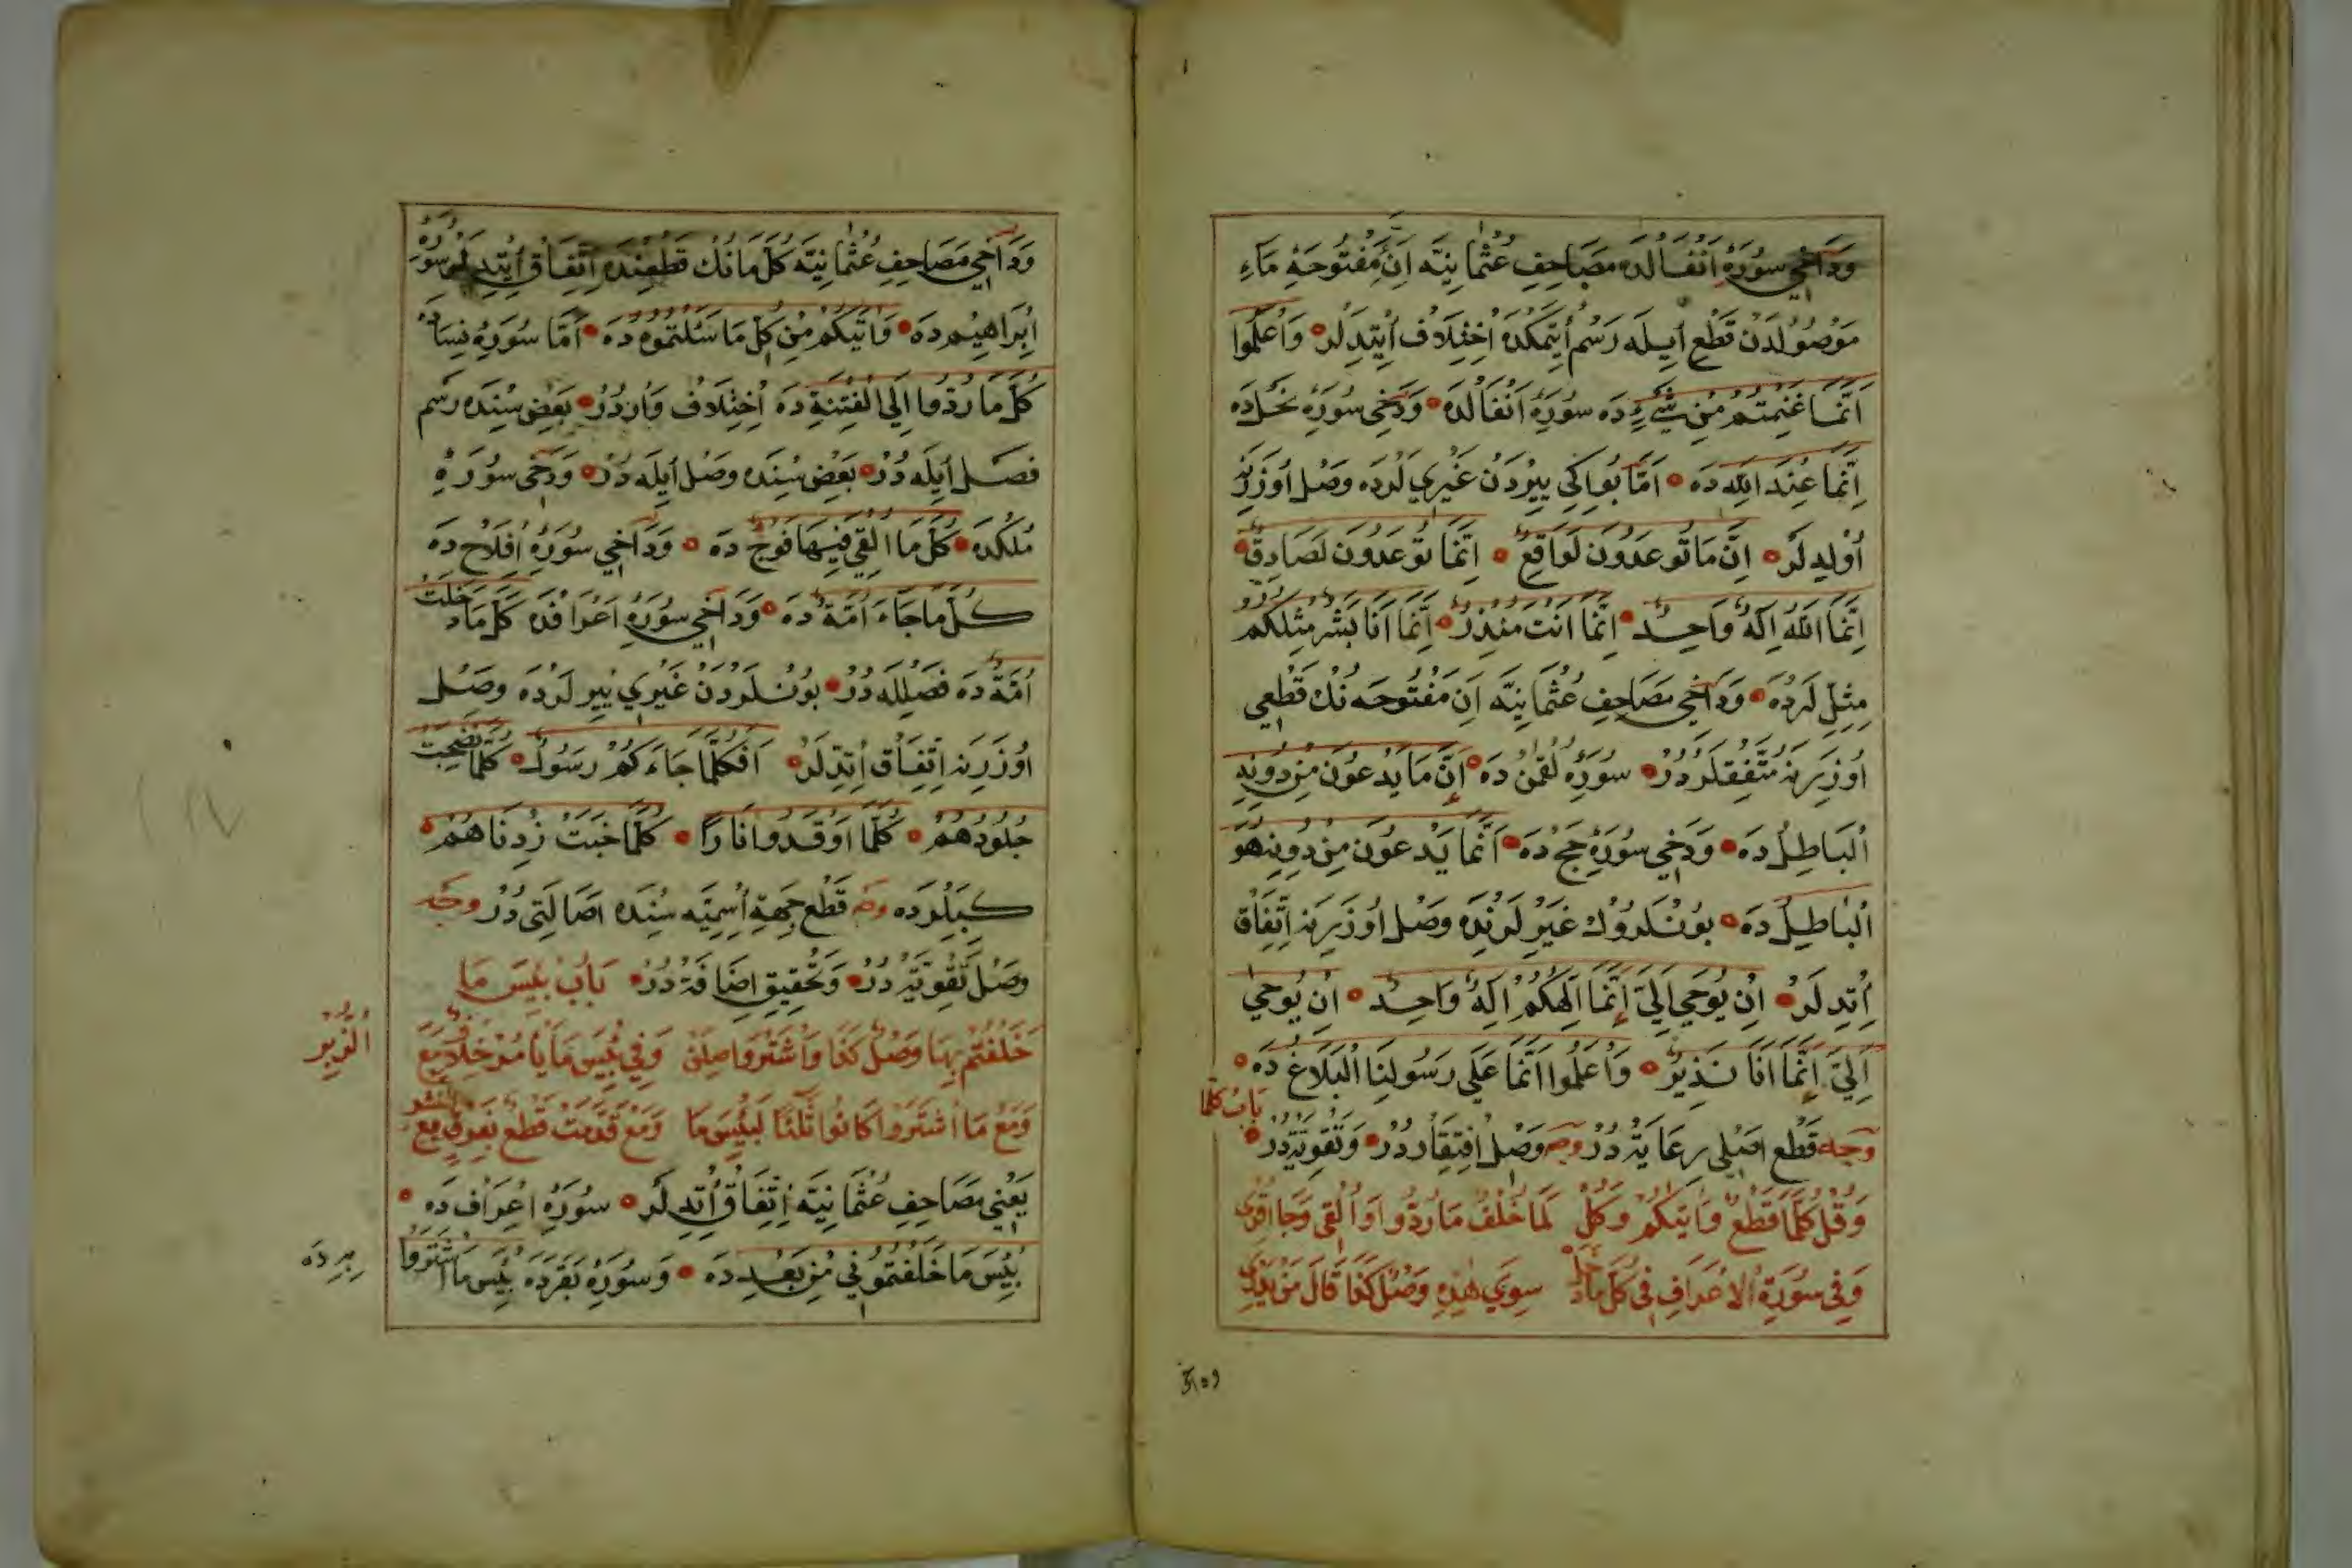 وَدَاخِي سُورَهُٔ اَنْفَالْدَه مَصَاحِفِ عُثْمَانِيَّه اَنَّ مَفْتُوحَهُٔ مَاءِ
مَوْصُولَدَنْ قَطْعِ اَيِلَه رَسْمْ اُيتِمَكْدَه اُخْتِلَافْ اُيتْدِيلَرْ وَاعْلَمُوا
اَنَّمَا غَنِمْتُمْ مِنْ شَيْءٍ دَه سُورَهُٔ اَنْفَالْدَه وَدَخِى سُورَهُٔ نَحْلْدَه
اِنَّمَا عِنْدَ اللّٰهِ دَه اَمَّا بُو اِكِي يِيرْدَنْ غَيْرِي لَرْدَه وَصْل اُوزَرِنَه
اُولْدِيلَرْ اِنَّ مَا تُوعَدُونَ لَوَاقِعٌ اِنَّمَا تُوعَدُونَ لَصَادِقٌ
اِنَّمَا اللّٰهُ اِلٰهٌ وَاحِدٌ اِنَّمَا اَنْتَ مُنْذِرٌ اِنَّمَا اَنَا بَشَرٌ مِثْلُكُمْ
مِثِلِّ لَرْدَه وَدَاخِي مَصَاحِفِ عُثْمَانِيَّه اَنَّ مَفْتُوحَه نُكْ قَطْعِي
اُوزَرِينَه مُتَّفِقْلَرْدُرْ سُورَهُٔ لُقْمٰنْ دَه اَنَّ مَا يَدْعُونَ مِنْ دُونِهِ
الْبَاطِلُ دَه وَدَخِي سُورَهُٔ حَجّ دَه اَنَّمَا يَدْعُونَ مِنْ دُونِهِ هُوَ
الْبَاطِلُ دَه بُونْلَرُوكْ غَيْرِ لَرِنْدَه وَصْل اُوزَرِينَه اِتِّفَاقْ
اُتْدِيلَرْ اِنْ يُوحٰى اِلَيَّ اِنَّمَا اِلٰهُكُمْ اِلٰهٌ وَاحِدٌ اِنْ يُوحٰى
اِلَيَّ اِنَّمَا اَنَا نَذِيرٌ وَاعْلَمُوا اَنَّمَا عَلٰى رَسُولِنَا الْبَلَاغُ دَه
بَابُ كُلَّمَا
وَجْه قَطْع اَصْلِى رِعَايَةْ دُرْ وَجْه وَصْل اِفْتِقَارْ دُرْ وَتَقْوِيَةْ دُرْ
وَقُلْ كُلَّمَا قَطْعٌ وَاٰتَيكُمْ وَكُلّ لَمَا خُلْفُ مَا رُدُّوا وَاُلْقِي وَجَا
وَفِى سُورَةِ الْاَعْرَافِ فِى كُلَّمَا دَخَلَ سِوٰى هٰذِهِ وَصْلٌ كَفَا قَالَ مَنْ
وَدَاخِي مَصَاحِفِ عُثْمَانِيَّه كُلَّ مَا نُكْ قَطْعِنْدَه اِتِّفَاقْ اُيتْدِيلَرْ سُورَهُٔ
اِبْرَاهِيمْ دَه وَاٰتٰيكُمْ مِنْ كُلِّ مَا سَأَلْتُمُوهُ دَه اَمَّا سُورَهُٔ نِسَادَه
كُلَّ مَا رُدُّوا اِلَى الْفِتْنَةِ دَه اُخْتِلَافْ وَارْدُرْ بَعْضِ سِنْدَه رَسْم
فَصْل اَيِلَه دُرْ بَعْضِ سِنْدَه وَصْل اَيِلَه دُرْ وَدَخِى سُورَهُٔ
مُلْكْدَه كُلَّ مَا اُلْقِيَ فِيهَا فَوْجٌ دَه وَدَاخِي سُورَهُٔ اَفْلَاحْ دَه
كُلَّ مَا جَاءَ اُمَّةً دَه وَدَاخِي سُورَهُٔ اَعْرَافْدَه كُلَّ مَا دَخَلَتْ
اُمَّةٌ دَه فَصْلِلَه دُرْ بُونْلَرْدَنْ غَيْرِي يِيرْلَرْدَه وَصْل
اُوزَرِينَه اِتِّفَاقْ اُتْدِيلَرْ اَفَكُلَّمَا جَاءَكُمْ رَسُولٌ كُلَّمَا نَضِجَتْ
جُلُودُهُمْ كُلَّمَا اَوْقَدُوا نَارًا كُلَّمَا خَبَتْ زِدْنَاهُمْ
كِبِيلَرْدَه وَجْه قَطْع جِهَةِ اُسْمِيَّه سِنْدَه اَصَالَتِى دُرْ وَجْه
وَصْل تَقْوِيَةْ دُرْ وَتَحْقِيقِ اِضَافَةْ دُرْ بَابُ بِئْسَ مَا
خَلَفْتُمْ بِهَا وَصْلٌ كَفَا وَاشْتَرَوْا صِلَنْ وَفِي بِئْسَ مَا يَأْمُرْ خِلَافٌ مَعَ
الزُّبُرْ
وَمَعْ مَا اشْتَرَوْا كَانُوا لَبِئْسَ مَا وَمَعْ قَدَّمَتْ قَطْعٌ مَعَ
يَعْنِي مَصَاحِفِ عُثْمَانِيَّه اِتِّفَاقْ اُتْدِيلَرْ سُورَهُٔ اَعْرَافْ دَه
بِئْسَ مَا خَلَفْتُمُونِي مِنْ بَعْدِ دَه وَسُورَهُٔ بَقَرَدَه بِئْسَ مَا اشْتَرَوْا